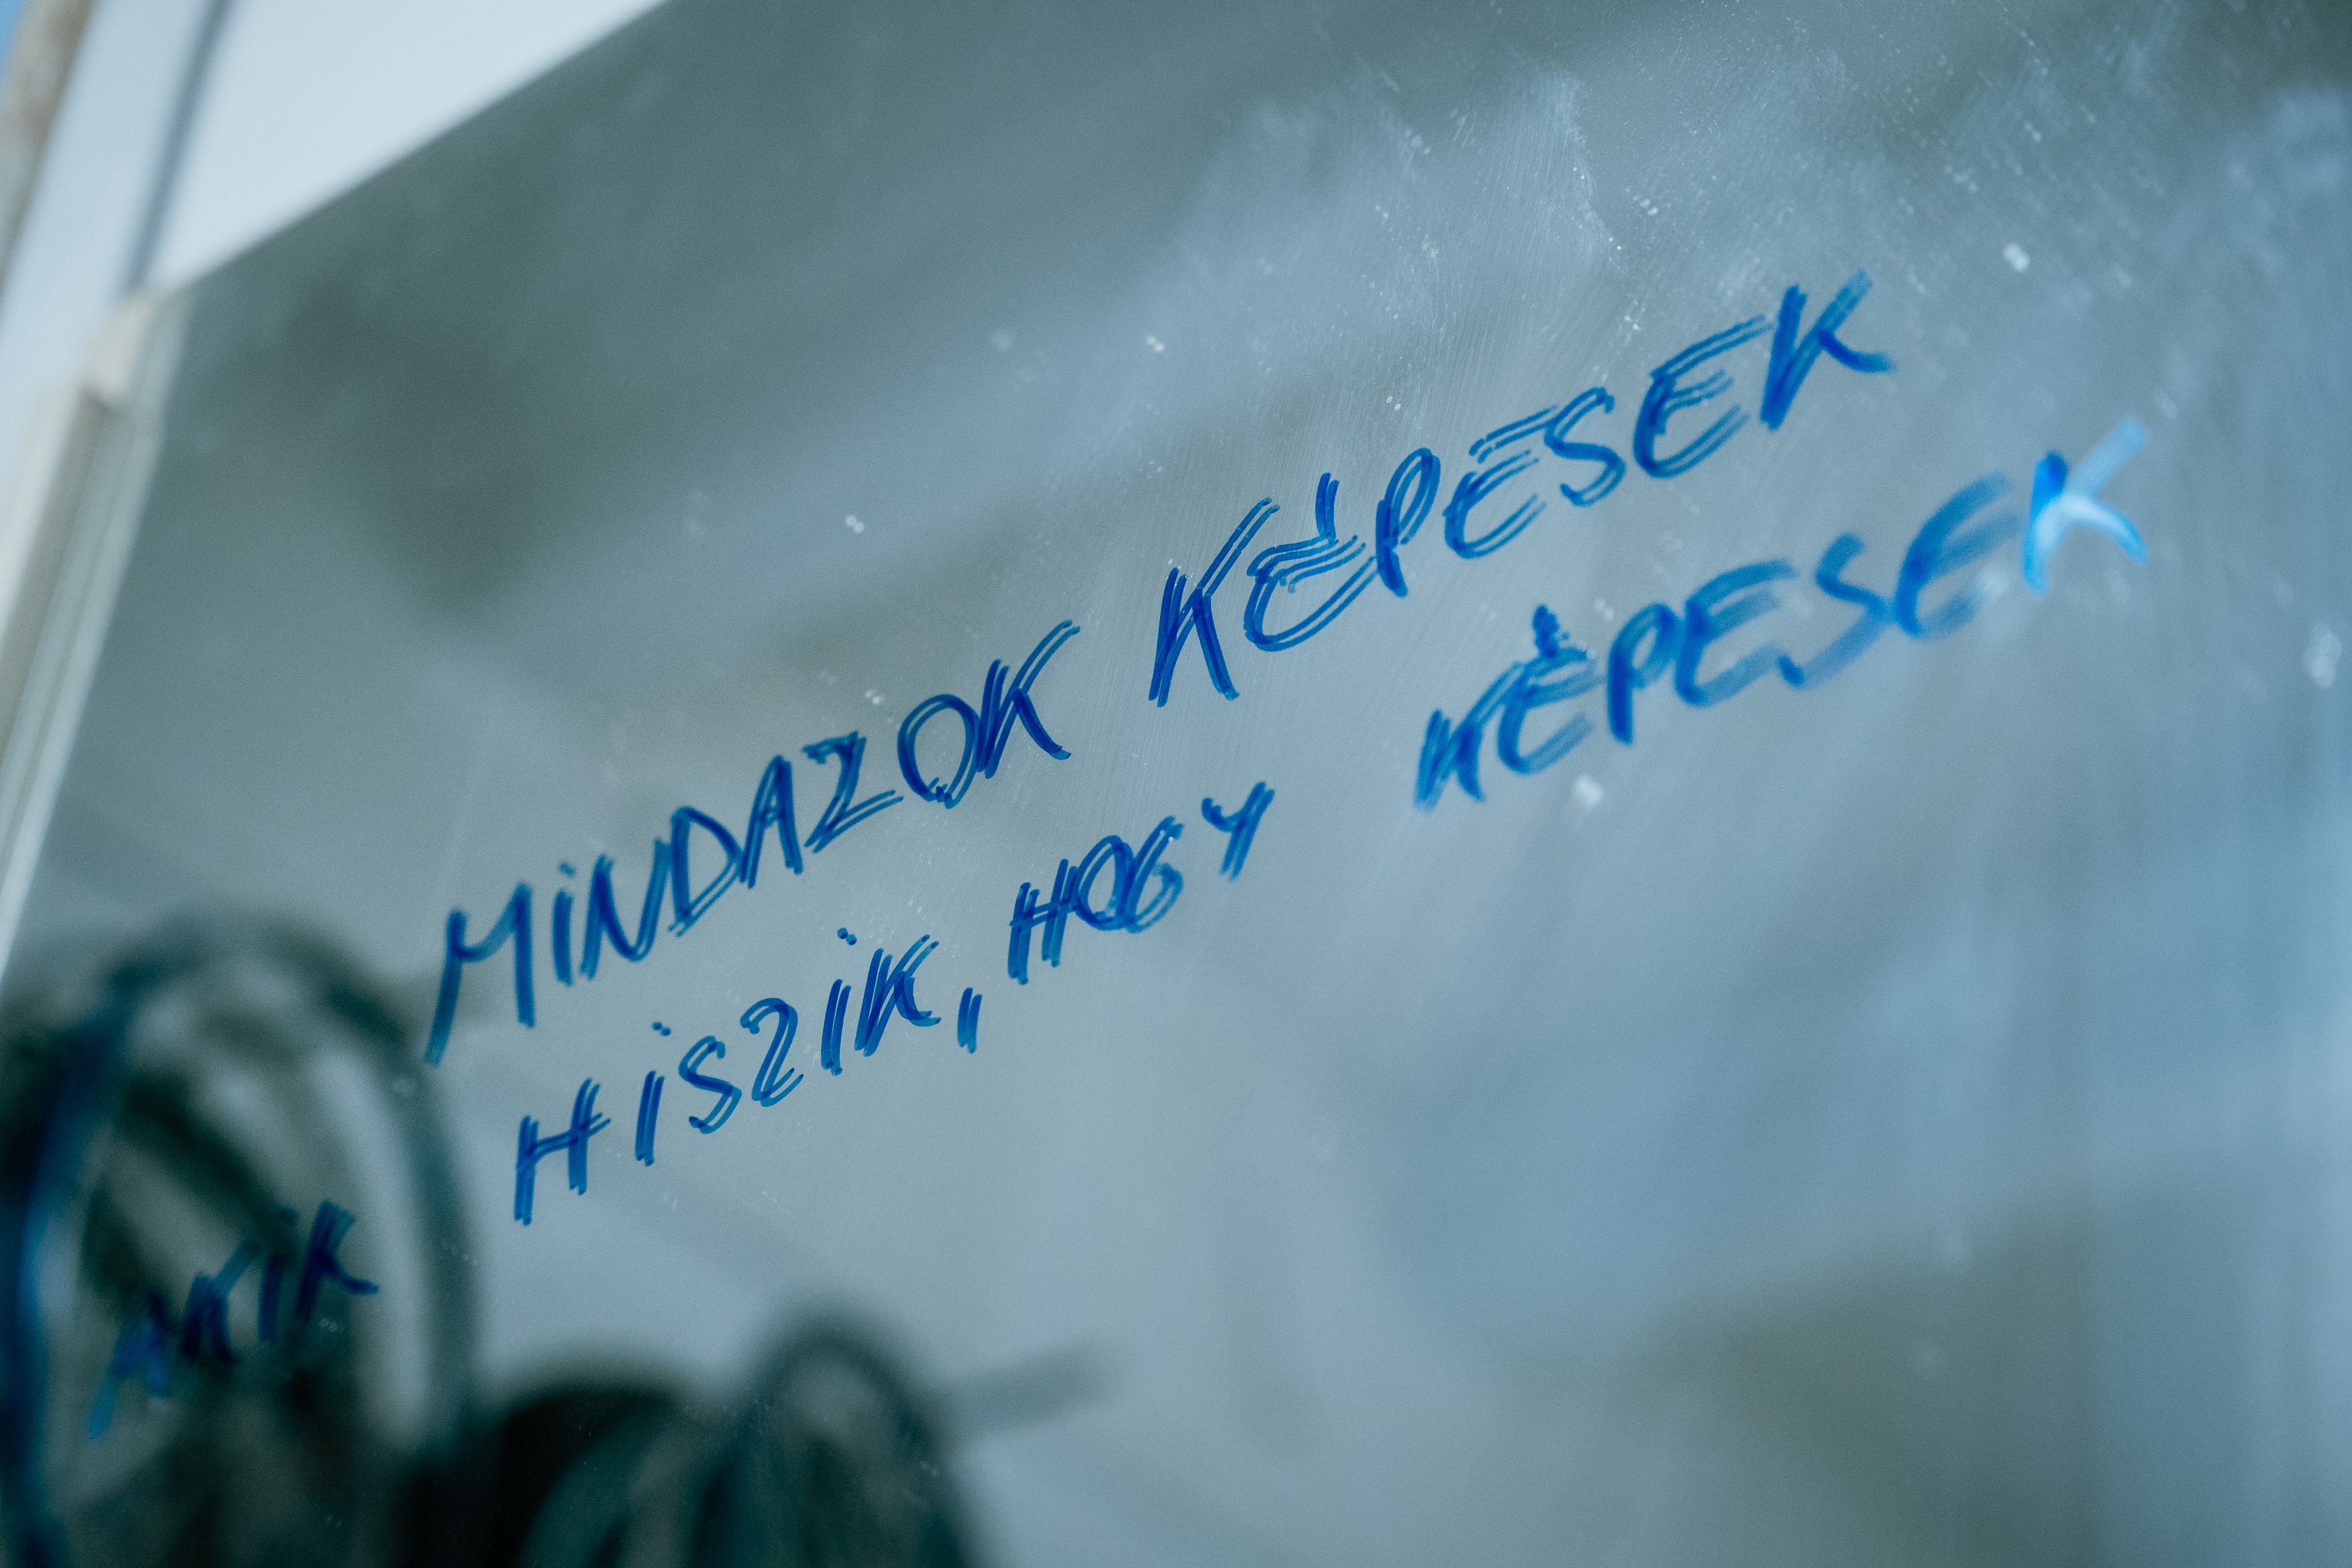 MINDAZOK KÉPESEK
AKIK HISZIK, HOGY KÉPESEK